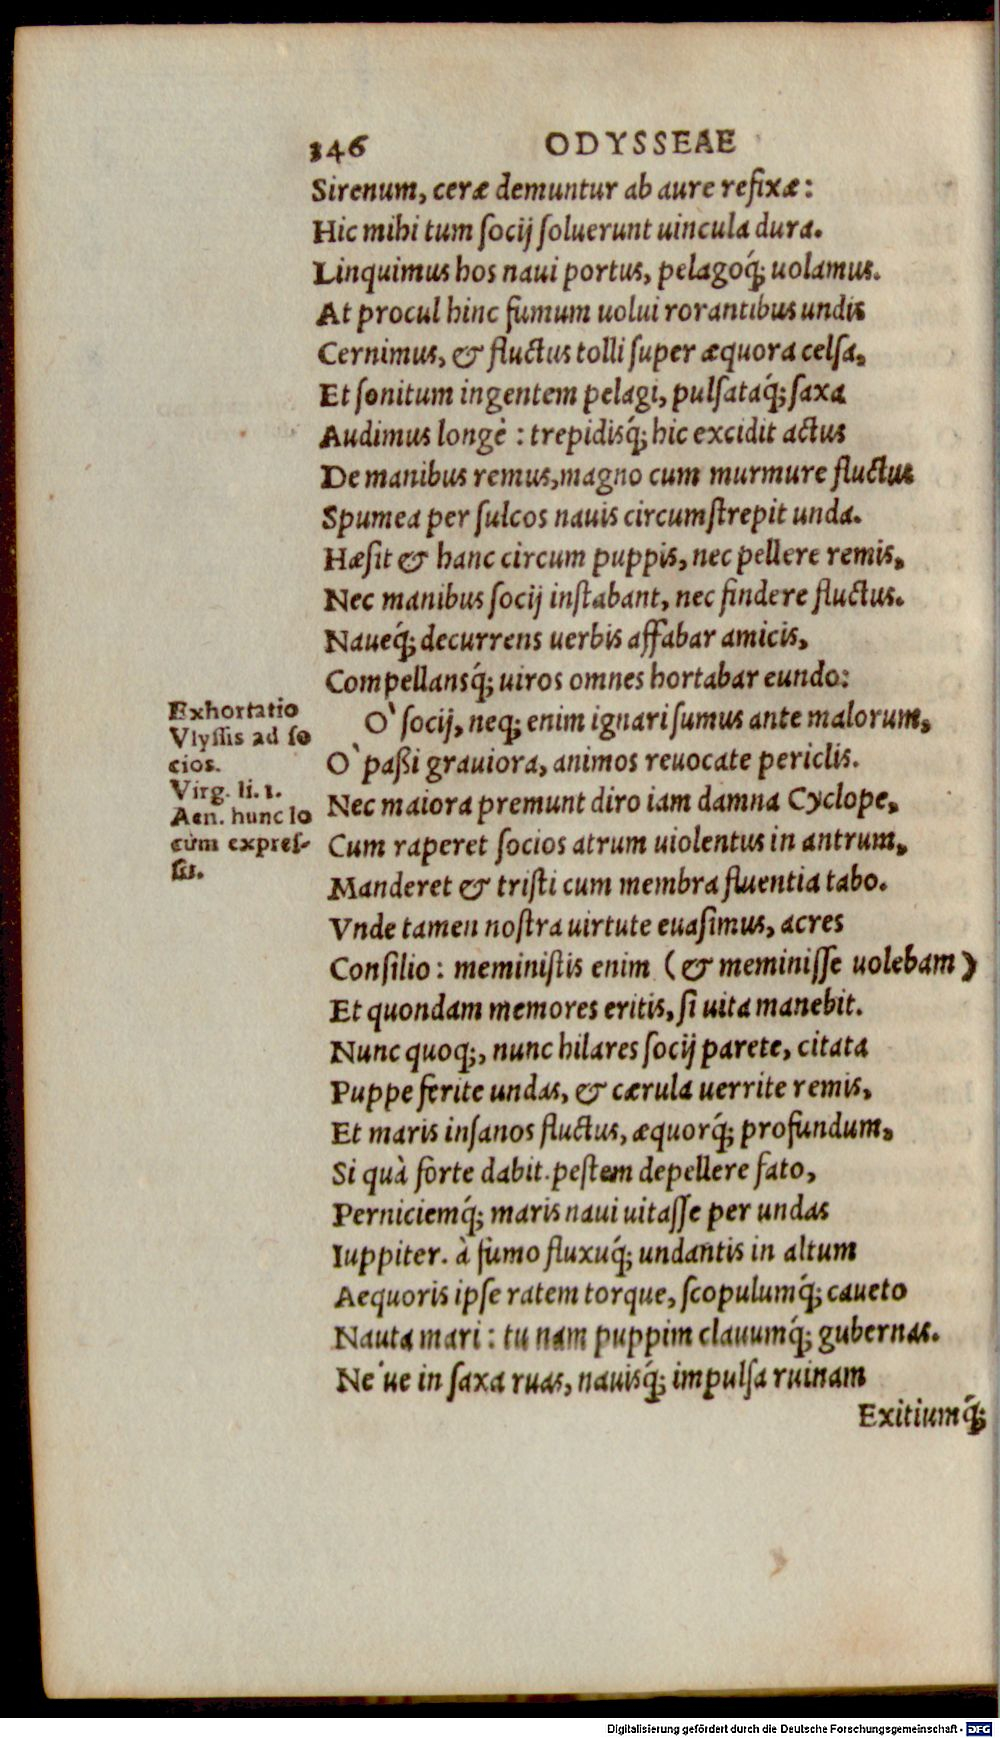 346 ODYSSEAE
Sirenum, ceræ demuntur ab aure refixæ:
Hic mihi tum ſocij ſoluerunt uincula dura.
Linquimus hos naui portus, pelagoq́; uolamus.
At procul hinc fumum uolui rorantibus undis
Cernimus, & fluctus tolli ſuper æquora celſa,
Et ſonitum ingentem pelagi, pulſataq́; ſaxa
Audimus longè : trepidisq́; hic excidit actus
De manibus remus, magno cum murmure fluctus
Spumea per ſulcos nauis circumſtrepit unda.
Hæſit & hanc circum puppis, nec pellere remis,
Nec manibus ſocij inſtabant, nec findere fluctus.
Naueq́; decurrens uerbis affabar amicis,
Compellansq́; uiros omnes hortabar eundo:
O` ſocij, neq; enim ignari ſumus ante malorum,
O` paßi grauiora, animos reuocate periclis.
Nec maiora premunt diro iam damna Cyclope,
Cum raperet ſocios atrum uiolentus in antrum,
Manderet & triſti cum membra fluentia tabo.
Vnde tamen noſtra uirtute euaſimus, acres
Conſilio : meminiſtis enim ( & meminiſſe uolebam )
Et quondam memores eritis, ſi uita manebit.
Nunc quoq;, nunc hilares ſocij parete, citata
Puppe ferite undas, & cærula uerrite remis,
Et maris inſanos fluctus, æquorq́; profundum,
Si quà forte dabit peſtem depellere fato,
Perniciemq́; maris naui uitaſſe per undas
Iuppiter. à fumo fluxuq́; undantis in altum
Aequoris ipſe ratem torque, ſcopulumq́; caueto
Nauta mari : tu nam puppim clauumq́; gubernas.
Ne'ue in ſaxa ruas, nauisq́; impulſa ruinam
Exitiumq́;
Exhortatio
Vlyſſis ad ſo
cios.
Virg. li. 1.
Aen. hunc lo
cùm expreſ-
ſit.
Digitalisierung gefördert durch die Deutsche Forschungsgemeinschaft - DFG